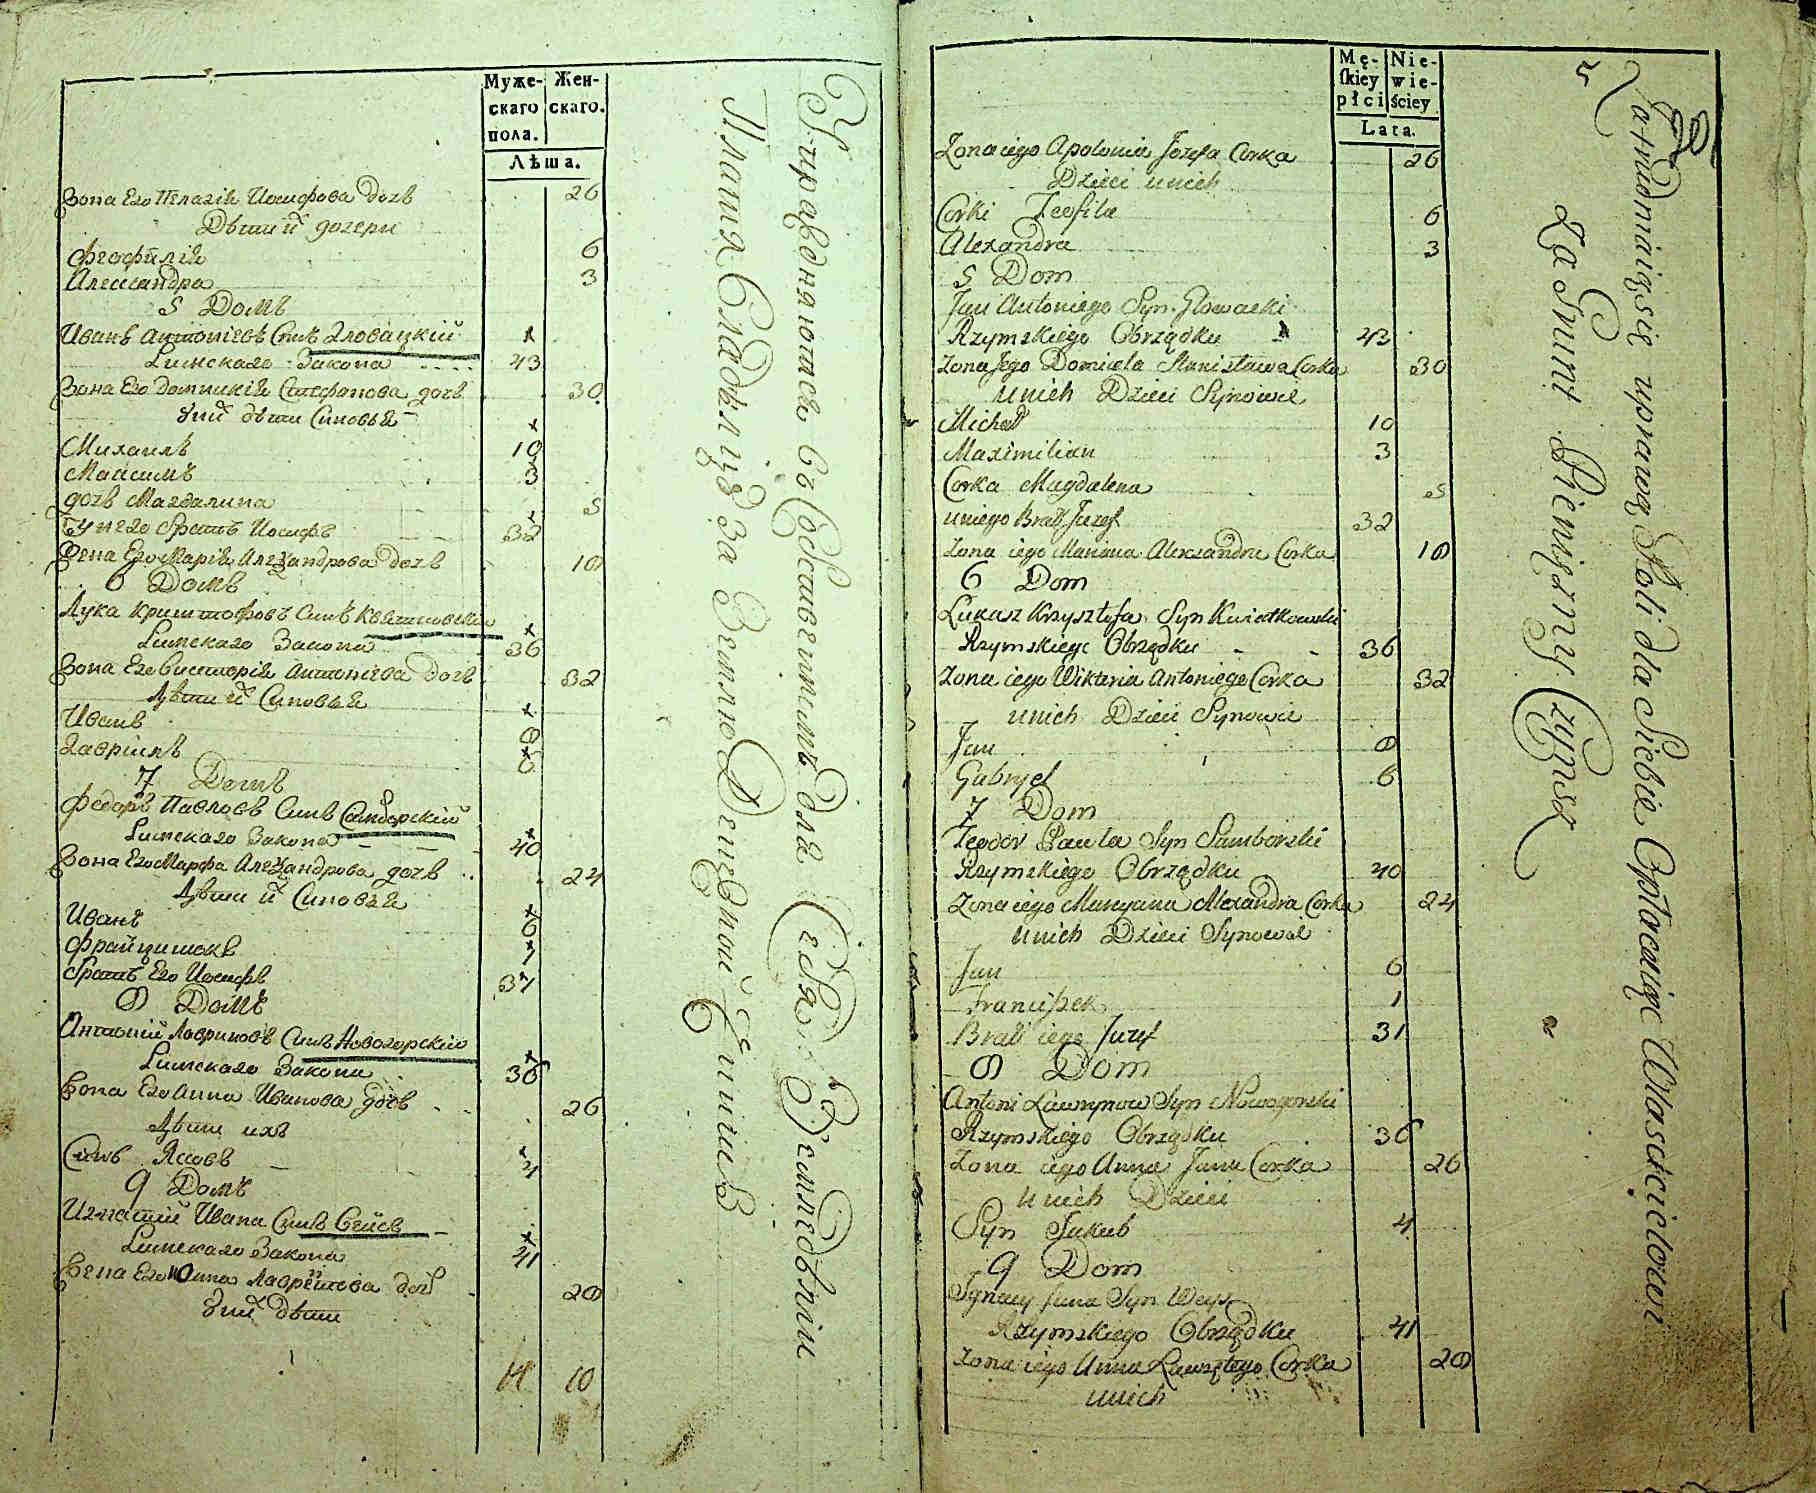 Муже-
скаго
пола.
Жен-
скаго.
Лѣта.
Зона Его Пелагія Иосифова дочь 26
Дѣти и дочери
Феофилія 6
Алессандра 3
5 Домъ
Иванъ Антоніевъ Синъ Зловацкій
Римскаго Закона 43
Зона Его Домникія Стефанова дочь 30
дѣти Синовья
Михаилъ 10
Максимъ 3
дочь Магдалина 5
брать Иосифъ 32
Зена Его Марія Александрова дочь 18
6 Домъ
Лука Криштофовъ Синъ Квятковскій
Римскаго Закона 36
Зона Его Викторія Антоніева дочь 32
Дѣти и Синовья
Иванъ 8
Гавріилъ 6
7 Домъ
Федоръ Павловъ Синъ Самборскій
Римскаго Закона 40
Зона Его Марфа Александрова дочь 24
Дѣти и Синовья
Иванъ 6
Францишокъ 1
братъ Его Иосифъ 31
8 Домъ
Антоній Лавриновъ Синъ Новогорскій
Римскаго Закона 36
Зона Его Анна Иванова дочь 26
Дѣти ихъ
Синъ Яковъ 4
9 Домъ
Игнатій Ивана Синъ Вейсъ
Римскаго Закона 41
Зена Его Анна дочь 28
дѣти
10
Упраждняются въ Составленіемъ для Себя Земледѣліи
Платя Владѣльцу за Землю Денежной Чиншъ
Mę-
skiey
płci
Nie-
wie-
ściey
Lata.
Zona iego Apolonia Jozefa Corka 26
Dzieci unich
Corki Teofila 6
Alexandra 3
5 Dom
Jan Antoniego Syn Głowacki
Rzymskiego Obrządku 43
Zona Jego Domicela Stanisława Corka 30
unich Dzieci Synowie
Michał 10
Maximilian 3
Corka Magdalena 5
uniego Brat Jozef 32
Zona iego Mariana Alexandra Corka 18
6 Dom
Łukasz Krzysztofa Syn Kwiatkowski
Rzymskiego Obrządku 36
Zona iego Wiktoria Antoniego Corka 32
unich Dzieci Synowie
Jan 8
Gabryel 6
7 Dom
Teodor Pawła Syn Samborski
Rzymskiego Obrządku 40
Zona iego Maryana Alexandra Corka 24
unich Dzieci Synowie
Jan 6
Franciszek 1
Brat iego Jozef 31
8 Dom
Antoni Ławrynow Syn Nowogorski
Rzymskiego Obrządku 36
Zona iego Anna Jana Corka 26
unich Dzieci
Syn Jakub 4
9 Dom
Ignacy Jana Syn Weys
Rzymskiego Obrządku 41
Zona iego Anna Corka 28
unich
Zatrudniaią się uprawą Roli dla Siebie Opłacaiąc Właścicielowi
Za Grunt Pieniężny Czynsz